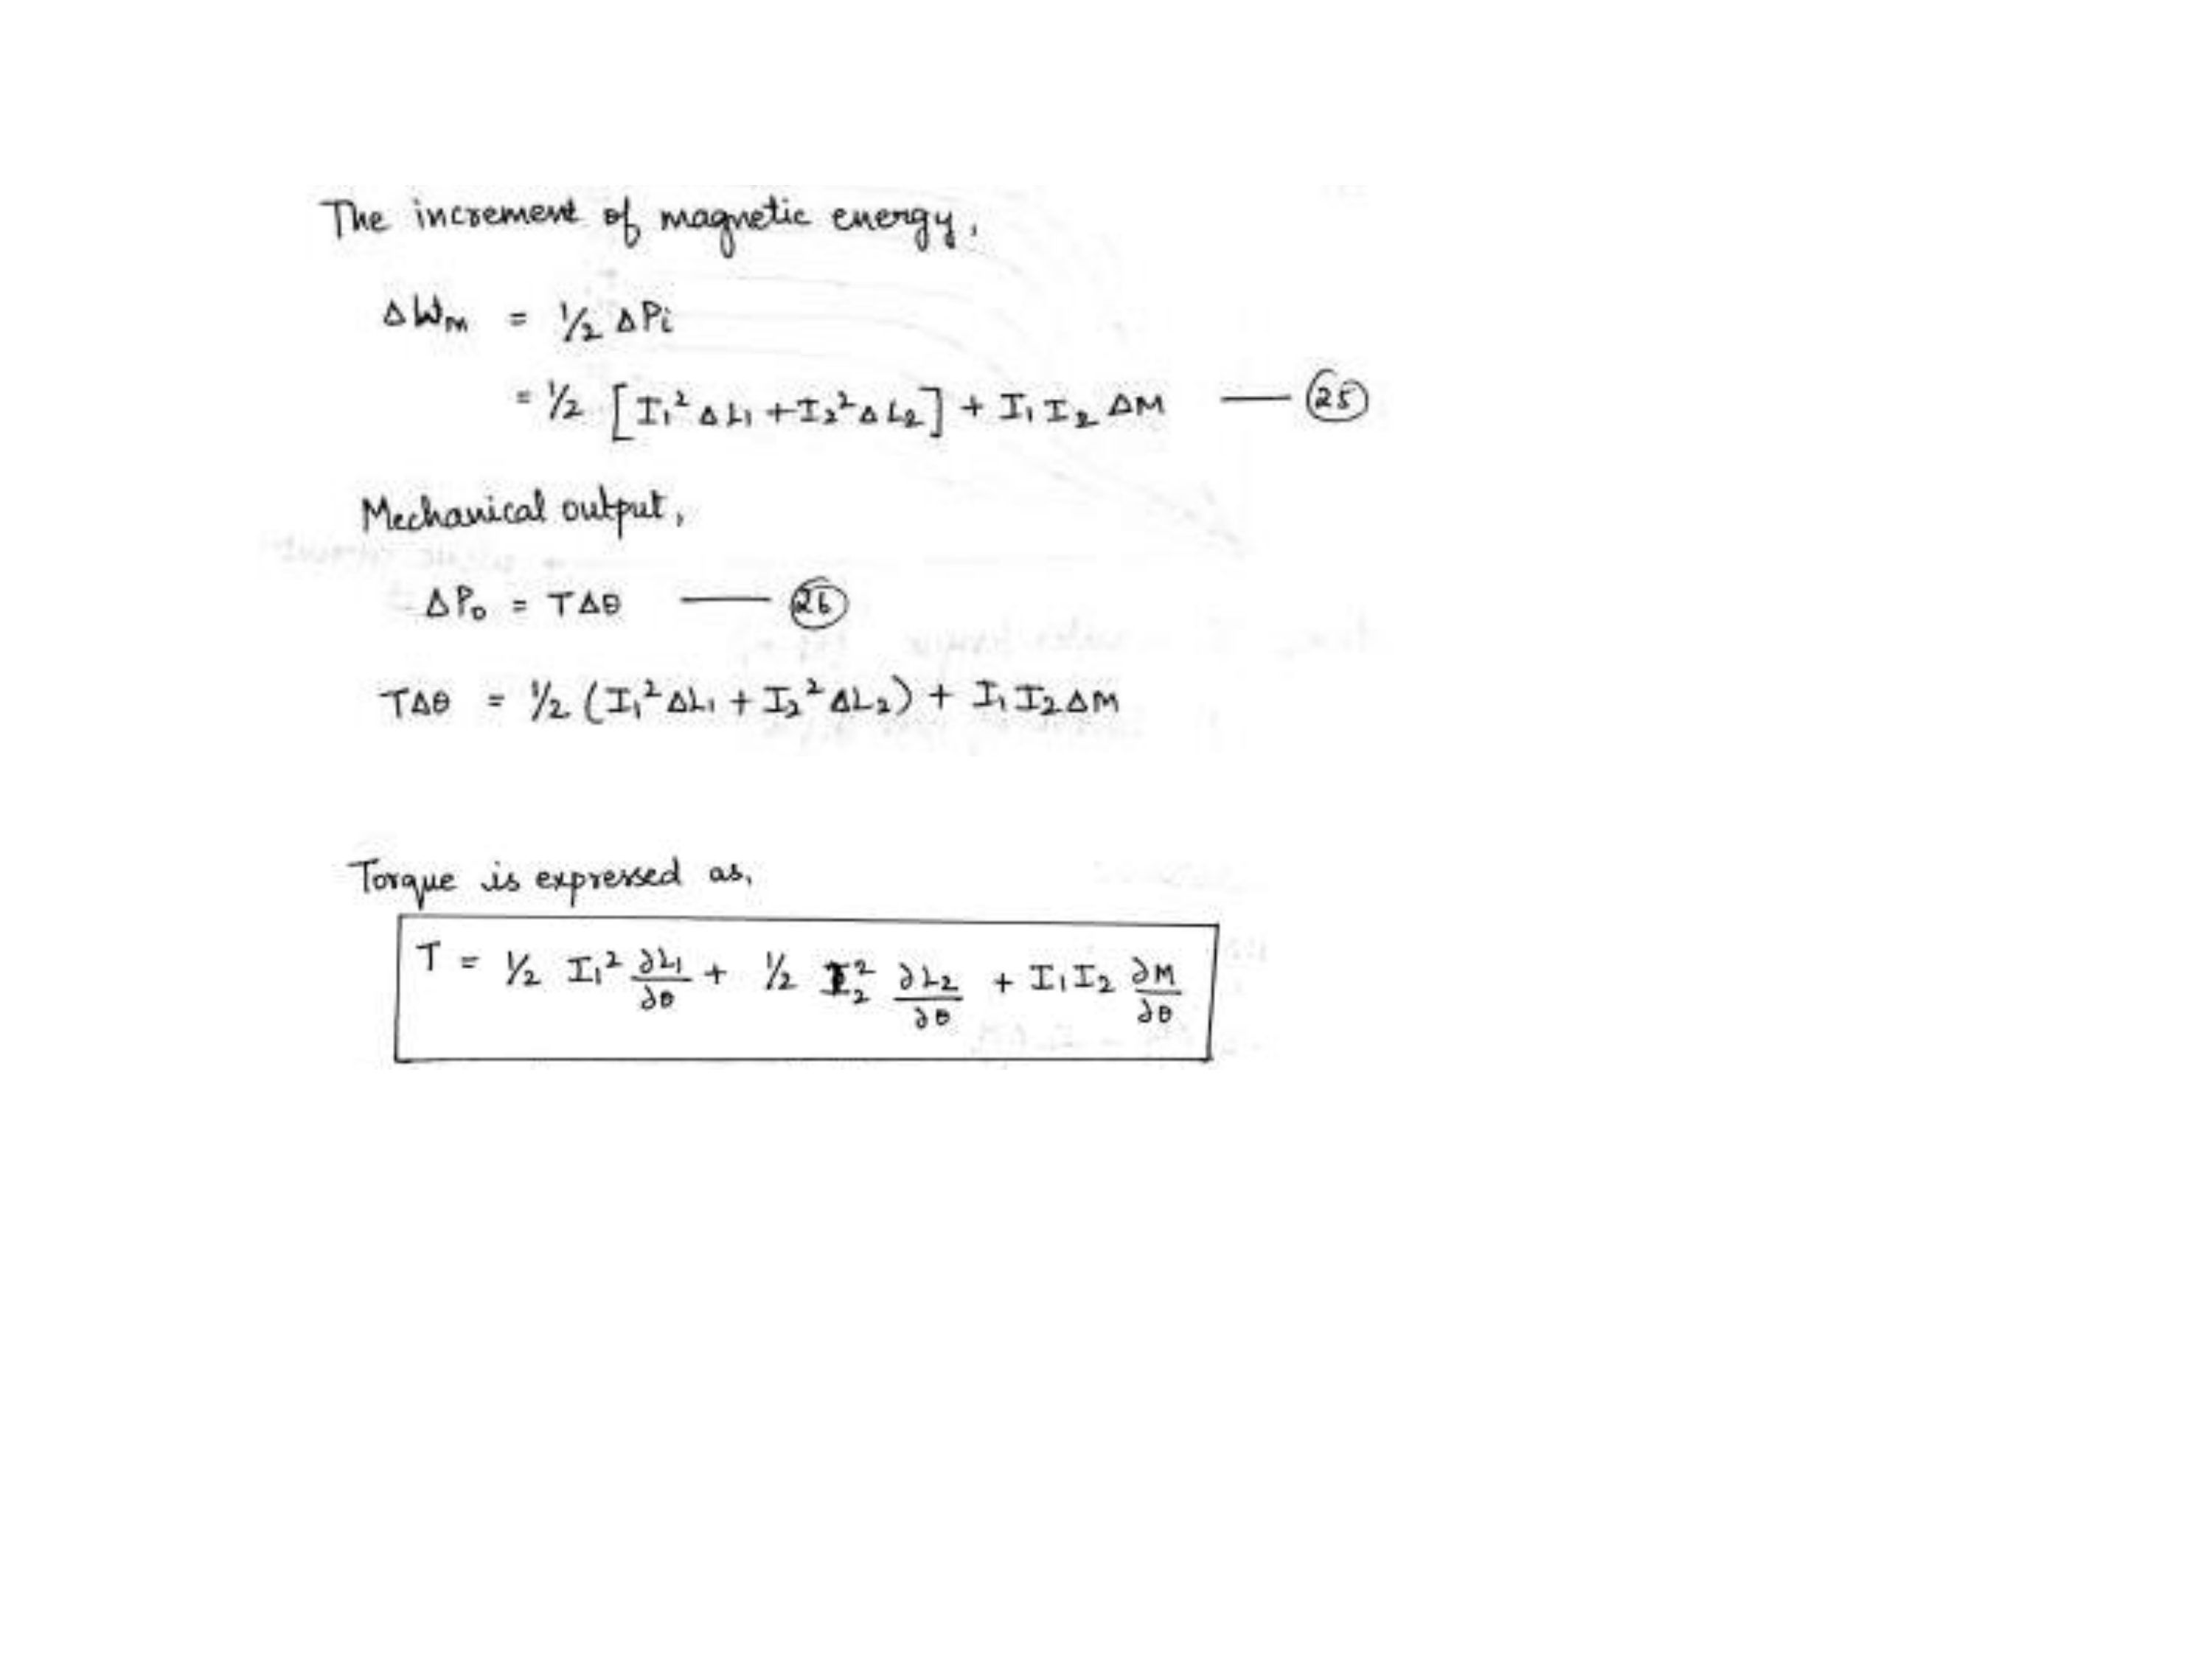 The increment of magnetic energy,
ΔWm = 1/2 ΔPi
= 1/2 [I₁² ΔL₁ + I₂² ΔL₂] + I₁ I₂ ΔM — 25
Mechanical output,
ΔPo = TΔθ — 26
TΔθ = 1/2 (I₁² ΔL₁ + I₂² ΔL₂) + I₁ I₂ ΔM
Torque is expressed as,
T = 1/2 I₁² ∂L₁/∂θ + 1/2 I₂² ∂L₂/∂θ + I₁ I₂ ∂M/∂θ